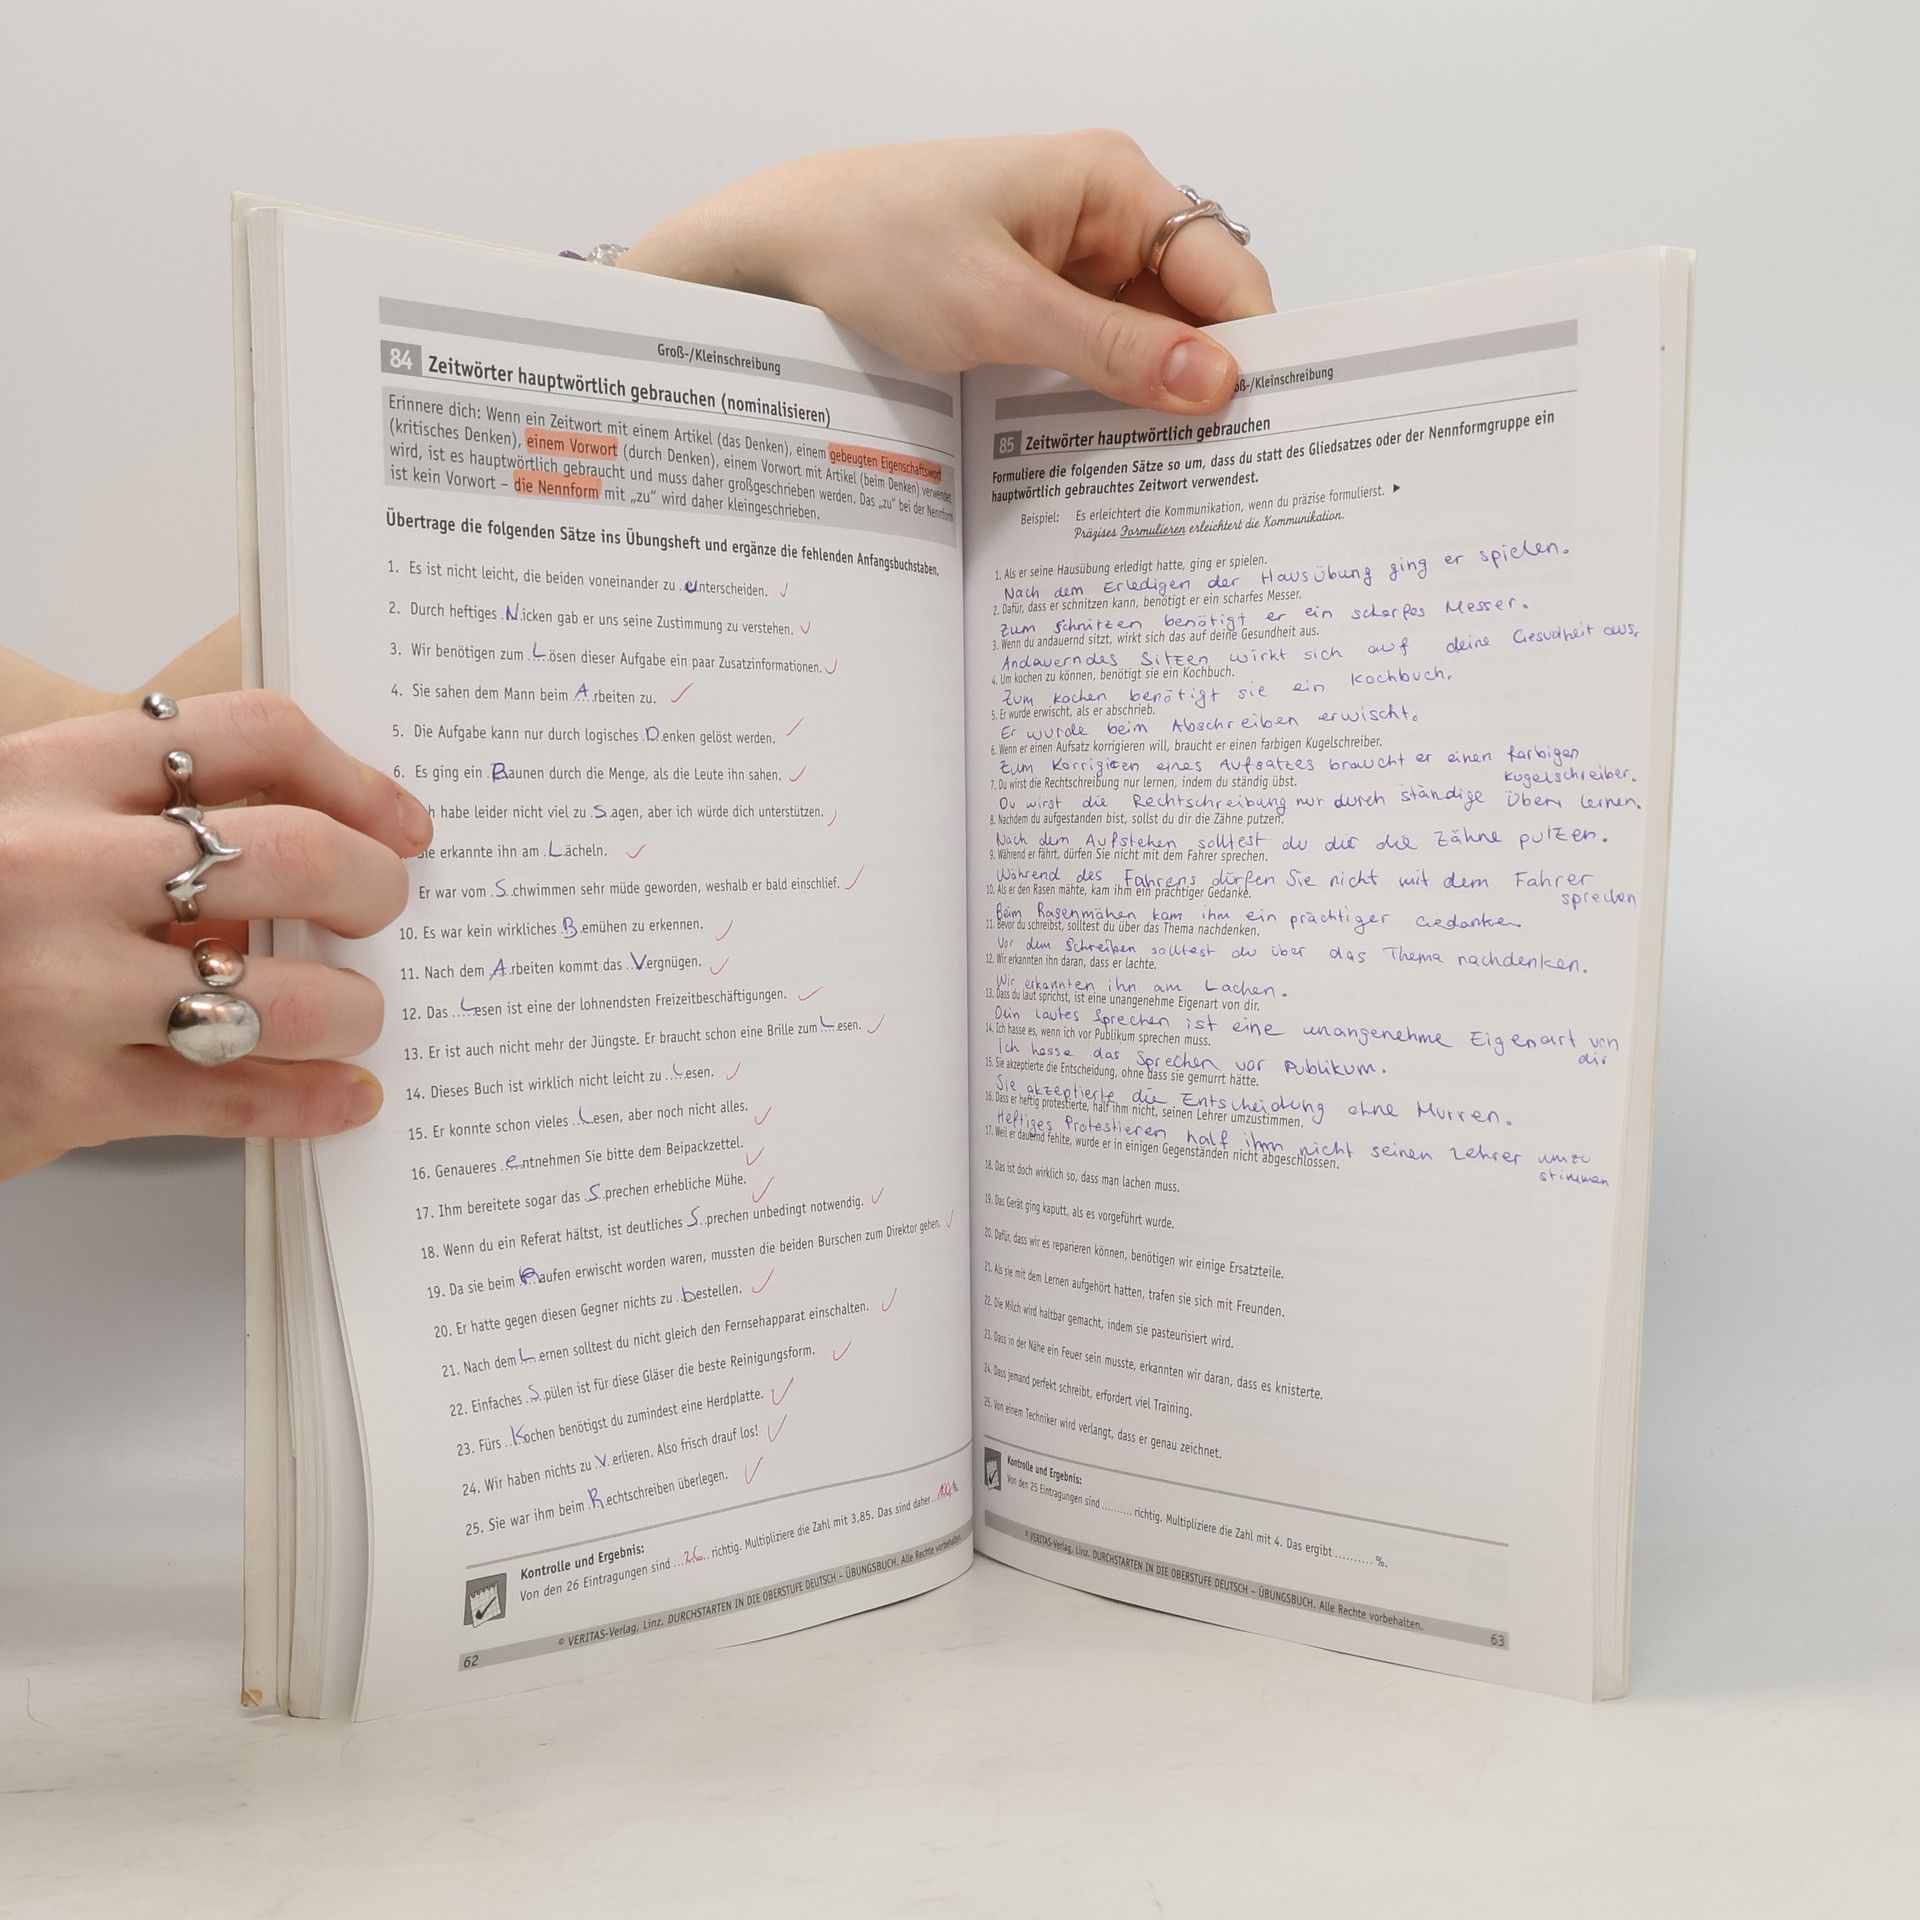 Groß-/Kleinschreibung
84 Zeitwörter hauptwörtlich gebrauchen (nominalisieren)
Erinnere dich: Wenn ein Zeitwort mit einem Artikel (das Denken), einem gebeugten Eigenschaftswort
(kritisches Denken), einem Vorwort (durch Denken), einem Vorwort mit Artikel (beim Denken) verwendet
wird, ist es hauptwörtlich gebraucht und muss daher großgeschrieben werden. Das „zu“ bei der Nennform
ist kein Vorwort – die Nennform mit „zu“ wird daher kleingeschrieben.
Übertrage die folgenden Sätze ins Übungsheft und ergänze die fehlenden Anfangsbuchstaben.
1. Es ist nicht leicht, die beiden voneinander zu unterscheiden.
2. Durch heftiges Nicken gab er uns seine Zustimmung zu verstehen.
3. Wir benötigen zum Lösen dieser Aufgabe ein paar Zusatzinformationen.
4. Sie sahen dem Mann beim Arbeiten zu.
5. Die Aufgabe kann nur durch logisches Denken gelöst werden.
6. Es ging ein Raunen durch die Menge, als die Leute ihn sahen.
h habe leider nicht viel zu Sagen, aber ich würde dich unterstützen.
ie erkannte ihn am Lächeln.
Er war vom Schwimmen sehr müde geworden, weshalb er bald einschlief.
10. Es war kein wirkliches Bemühen zu erkennen.
11. Nach dem Arbeiten kommt das Vergnügen.
12. Das Lesen ist eine der lohnendsten Freizeitbeschäftigungen.
13. Er ist auch nicht mehr der Jüngste. Er braucht schon eine Brille zum Lesen.
14. Dieses Buch ist wirklich nicht leicht zu Lesen.
15. Er konnte schon vieles Lesen, aber noch nicht alles.
16. Genaueres entnehmen Sie bitte dem Beipackzettel.
17. Ihm bereitete sogar das Sprechen erhebliche Mühe.
18. Wenn du ein Referat hältst, ist deutliches Sprechen unbedingt notwendig.
19. Da sie beim Raufen erwischt worden waren, mussten die beiden Burschen zum Direktor gehen.
20. Er hatte gegen diesen Gegner nichts zu bestellen.
21. Nach dem Lernen solltest du nicht gleich den Fernsehapparat einschalten.
22. Einfaches Spülen ist für diese Gläser die beste Reinigungsform.
23. Fürs Kochen benötigst du zumindest eine Herdplatte.
24. Wir haben nichts zu verlieren. Also frisch drauf los!
25. Sie war ihm beim Rechtschreiben überlegen.
Kontrolle und Ergebnis:
Von den 26 Eintragungen sind 26 richtig. Multipliziere die Zahl mit 3,85. Das sind daher 100 %.
© VERITAS-Verlag, Linz. DURCHSTARTEN IN DIE OBERSTUFE DEUTSCH – ÜBUNGSBUCH. Alle Rechte vorbehalten.
62
oß-/Kleinschreibung
85 Zeitwörter hauptwörtlich gebrauchen
Formuliere die folgenden Sätze so um, dass du statt des Gliedsatzes oder der Nennformgruppe ein
hauptwörtlich gebrauchtes Zeitwort verwendest.
Beispiel: Es erleichtert die Kommunikation, wenn du präzise formulierst. ►
Präzises Formulieren erleichtert die Kommunikation.
1. Als er seine Hausübung erledigt hatte, ging er spielen.
Nach dem Erledigen der Hausübung ging er spielen.
2. Dafür, dass er schnitzen kann, benötigt er ein scharfes Messer.
Zum schnitzen benötigt er ein scharfes Messer.
3. Wenn du andauernd sitzt, wirkt sich das auf deine Gesundheit aus.
Andauerndes Sitzen wirkt sich auf deine Gesudheit aus.
4. Um kochen zu können, benötigt sie ein Kochbuch.
Zum kochen benötigt sie ein Kochbuch.
5. Er wurde erwischt, als er abschrieb.
Er wurde beim Abschreiben erwischt.
6. Wenn er einen Aufsatz korrigieren will, braucht er einen farbigen Kugelschreiber.
Zum Korrigieren eines Aufsatzes braucht er einen farbigen
Kugelschreiber.
7. Du wirst die Rechtschreibung nur lernen, indem du ständig übst.
Du wirst die Rechtschreibung nur durch ständige Üben lernen.
8. Nachdem du aufgestanden bist, sollst du dir die Zähne putzen.
Nach dem Aufstehen solltest du dir die Zähne putzen.
9. Während er fährt, dürfen Sie nicht mit dem Fahrer sprechen.
Während des Fahrens dürfen Sie nicht mit dem Fahrer
sprechen
10. Als er den Rasen mähte, kam ihm ein prächtiger Gedanke.
Beim Rasenmähen kam ihm ein prächtiger Gedanken
11. Bevor du schreibst, solltest du über das Thema nachdenken.
Vor dem Schreiben solltest du über das Thema nachdenken.
12. Wir erkannten ihn daran, dass er lachte.
Wir erkannten ihn am Lachen.
13. Dass du laut sprichst, ist eine unangenehme Eigenart von dir.
Dein lautes Sprechen ist eine unangenehme Eigenart von
dir
14. Ich hasse es, wenn ich vor Publikum sprechen muss.
Ich hasse das Sprechen vor Publikum.
15. Sie akzeptierte die Entscheidung, ohne dass sie gemurrt hätte.
Sie akzeptierte die Entscheidung ohne Murren.
16. Dass er heftig protestierte, half ihm nicht, seinen Lehrer umzustimmen.
Heftiges Protestieren half ihm nicht seinen Lehrer umzu
stimmen
17. Weil er dauernd fehlte, wurde er in einigen Gegenständen nicht abgeschlossen.
18. Das ist doch wirklich so, dass man lachen muss.
19. Das Gerät ging kaputt, als es vorgeführt wurde.
20. Dafür, dass wir es reparieren können, benötigen wir einige Ersatzteile.
21. Als sie mit dem Lernen aufgehört hatten, trafen sie sich mit Freunden.
22. Die Milch wird haltbar gemacht, indem sie pasteurisiert wird.
23. Dass in der Nähe ein Feuer sein musste, erkannten wir daran, dass es knisterte.
24. Dass jemand perfekt schreibt, erfordert viel Training.
25. Von einem Techniker wird verlangt, dass er genau zeichnet.
Kontrolle und Ergebnis:
Von den 25 Eintragungen sind .......... richtig. Multipliziere die Zahl mit 4. Das ergibt .......... %.
© VERITAS-Verlag, Linz. DURCHSTARTEN IN DIE OBERSTUFE DEUTSCH – ÜBUNGSBUCH. Alle Rechte vorbehalten.
63